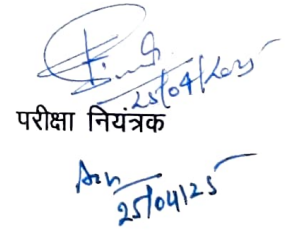 25/04/2025
परीक्षा नियंत्रक
25/04/25